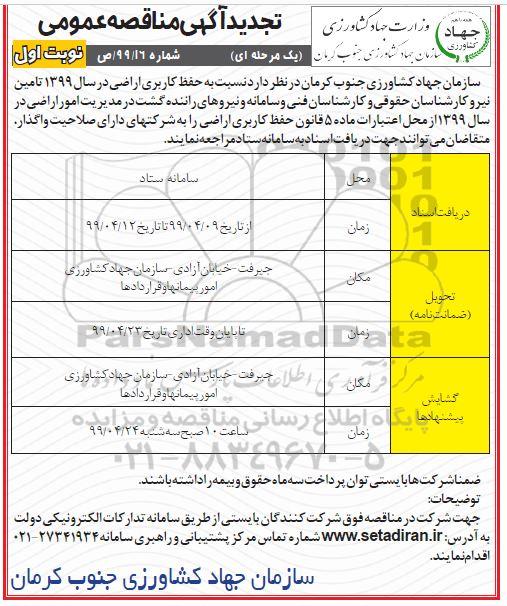 تجدید آگهی مناقصه عمومی
(یک مرحله ای) شماره ۹۹/۱۶/ص
نوبت اول
وزارت جهاد کشاورزی
سازمان جهاد کشاورزی جنوب کرمان
همه با هم
جهاد
کشاورزی
سازمان جهاد کشاورزی جنوب کرمان در نظر دارد نسبت به حفظ کاربری اراضی در سال ۱۳۹۹ تامین
نیرو کارشناسان حقوقی و کارشناسان فنی و سامانه و نیروهای راننده گشت در مدیریت امور اراضی در
سال ۱۳۹۹ از محل اعتبارات ماده ۵ قانون حفظ کاربری اراضی را به شرکتهای دارای صلاحیت واگذار.
متقضان می توانند جهت دریافت اسناد به سامانه ستاد مراجعه نمایند.
دریافت اسناد
محل
سامانه ستاد
زمان
از تاریخ ۹۹/۰۴/۰۹ تا تاریخ ۹۹/۰۴/۱۲
تحویل
(ضمانتنامه)
مکان
جیرفت-خیابان آزادی-سازمان جهاد کشاورزی
امور پیمانها و قراردادها
زمان
تا پایان وقت اداری تاریخ ۹۹/۰۴/۲۳
گشایش
پیشنهادها
مکان
جیرفت-خیابان آزادی-سازمان جهاد کشاورزی
امور پیمانها و قراردادها
زمان
ساعت ۱۰ صبح سه شنبه ۹۹/۰۴/۲۴
ParsNamadData
پایگاه اطلاع رسانی مناقصه و مزایده
۰۲۱-۸۸۳۴۹۶۷۰-۵
ضمنا شرکت ها بایستی توان پرداخت سه ماه حقوق و بیمه را داشته باشند.
توضیحات:
جهت شرکت در مناقصه فوق شرکت کنندگان بایستی از طریق سامانه تدارکات الکترونیکی دولت
به آدرس: www.setadiran.ir شماره تماس مرکز پشتیبانی و راهبری سامانه ۲۷۳۴۱۹۳۴-۰۲۱
اقدام نمایند.
سازمان جهاد کشاورزی جنوب کرمان